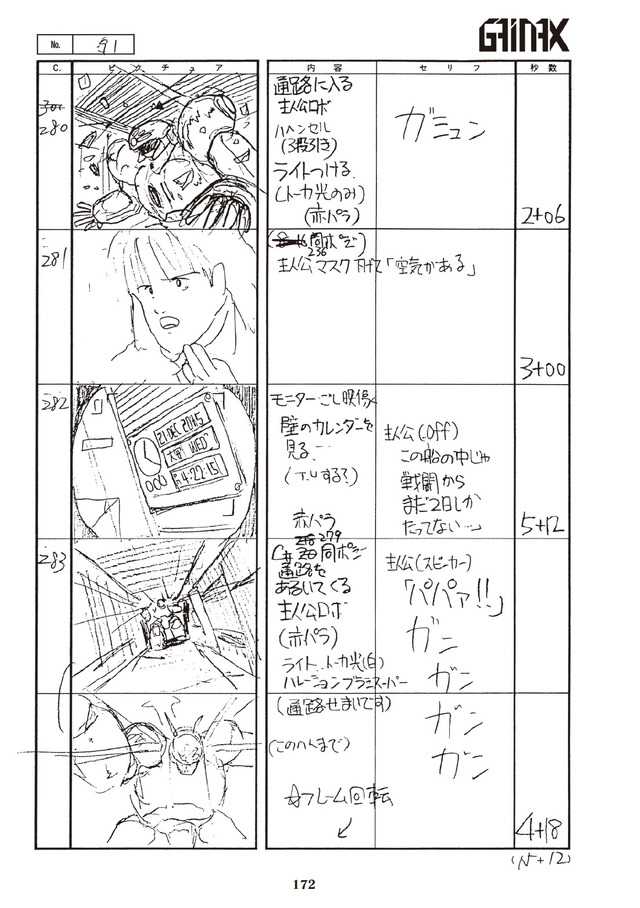 GAINAX
No. 91
C. ピクチュア 内容 セリフ 秒数
280
通路に入る
主人公ロボ
ハヘンセル
(3段引き)
ライトつける.
(トーカ光のみ)
(赤パラ)
ガミュン
2+06
281
同ポジ)
236
主人公マスク下げて「空気がある」
3+00
282
モニターごし映像
壁のカレンダーを
見る…
(T.Uする?)
赤パラ
21 DEC 2045
WED
4:22:15
主人公(Off)
この船の中じゃ
戦闘から
まだ2日しか
たってない…」
5+12
283
279
同ポジ
通路を
あるいてくる
主人公ロボ
(赤パラ)
ライト、トーカ光(白)
ハレーションブラシスーパー
主人公(スピーカー)
「パパァ!!」
ガン
ガン
(通路せまいです)
ガン
(このへんまで)
ガン
フレーム回転
4+18
(15+12)
172